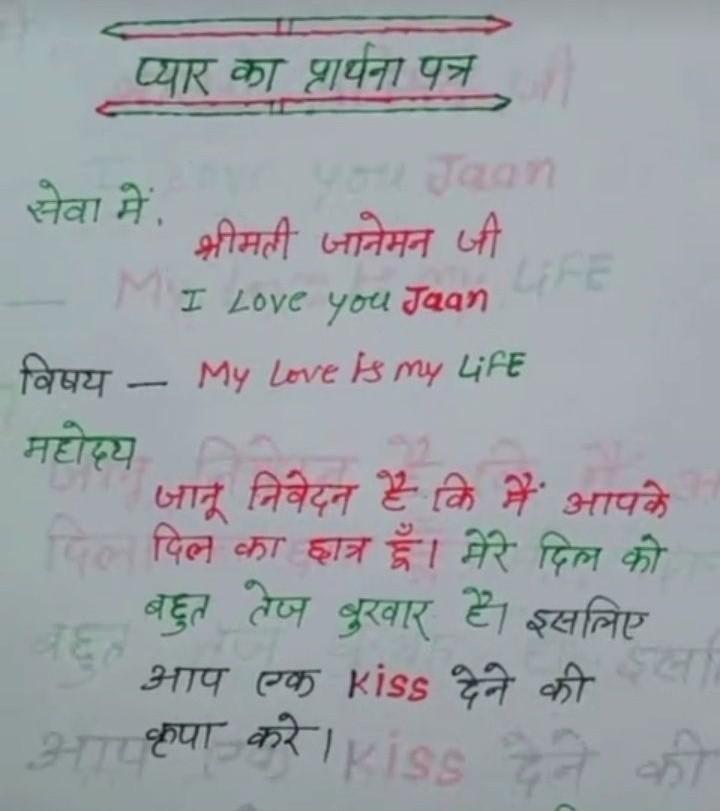 प्यार का प्रार्थना पत्र
सेवा में,
श्रीमती जानेमन जी
I Love you Jaan
विषय – My Love is my LiFE
महोदय
जानू निवेदन है कि मैं आपके
दिल का छात्र हूँ। मेरे दिल को
बहुत तेज बुखार है। इसलिए
आप एक Kiss देने की
कृपा करे।